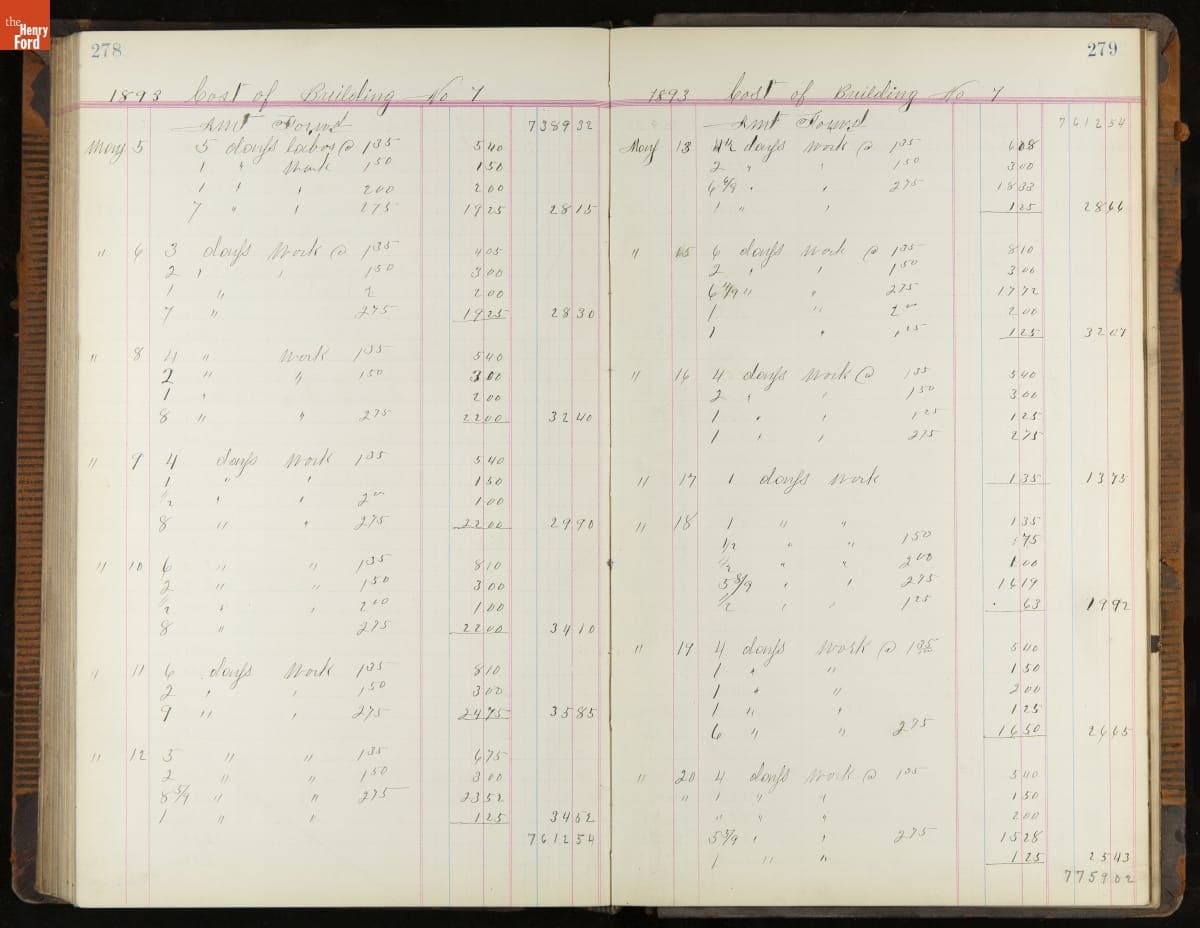 the Henry Ford
278
1893 Cost of Building No 7
Amt Forwd 7389 32
May 5 5 days labor @ 1 35 5 40
1 " Work 1 50 1 50
1 " " 2 00 2 00
7 " " 2 75 19 25 28 15
" 6 3 days Work @ 1 35 4 05
2 " " 1 50 3 00
1 " 2 2 00
7 " 2 75 19 25 28 30
" 8 4 " Work 1 35 5 40
2 " " 1 50 3 00
1 " 2 00
8 " " 2 75 22 00 32 40
" 9 4 days Work 1 35 5 40
1 " " 1 50
1/2 " " 2 00 1 00
8 " " 2 75 22 00 29 90
" 10 6 " " 1 35 8 10
2 " " 1 50 3 00
1/2 " " 2 00 1 00
8 " 2 75 22 00 34 10
" 11 6 days Work 1 35 8 10
2 " " 1 50 3 00
9 " " 2 75 24 75 35 85
" 12 5 " " 1 35 6 75
2 " " 1 50 3 00
8 5/9 " " 2 75 23 52
1 " " 1 25 34 52
7612 54
279
1893 Cost of Building No 7
Amt Forwd 7612 54
May 13 4 1/2 days Work @ 1 35 6 08
2 " " 1 50 3 00
6 6/9 " " 2 75 18 33
1 " " 1 25 28 66
" 15 6 days Work @ 1 35 8 10
2 " " 1 50 3 00
6 4/9 " " 2 75 17 72
1 " 2 00 2 00
1 " 1 25 1 25 32 07
" 16 4 days Work @ 1 35 5 40
2 " " 1 50 3 00
1 " " 1 25 1 25
1 " " 2 75 2 75
" 17 1 days Work 1 35 13 75
" 18 1 " " 1 35
1/2 " " 1 50 75
1/2 " " 2 00 1 00
5 8/9 " " 2 75 16 19
1/2 " " 1 25 63 19 92
" 19 4 days Work @ 1 35 5 40
1 " " 1 50
1 " " 2 00
1 " " 1 25
6 " " 2 75 16 50 26 65
" 20 4 days Work @ 1 35 5 40
" 1 " " 1 50
" " " 2 00
5 5/9 " " 2 75 15 28
1 " " 1 25 25 43
7759 02